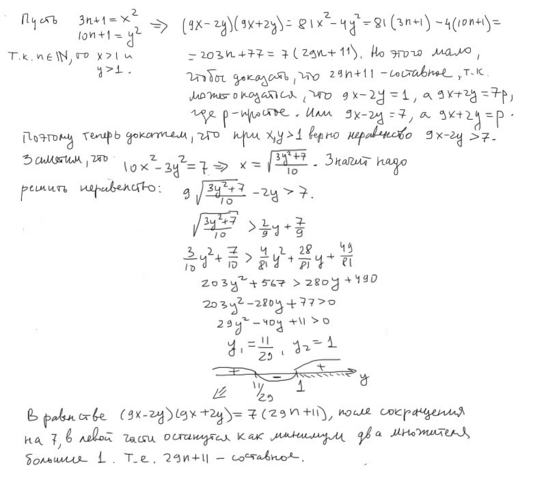 Пусть 3n+1=x² ⇒ (9x-2y)(9x+2y)=81x²-4y²=81(3n+1)-4(10n+1)=
10n+1=y²
Т.к. n∈ℕ, то x>1 и
y>1.
=203n+77=7(29n+11). Но этого мало,
чтобы доказать, что 29n+11-составное, т.к.
может оказаться, что 9x-2y=1, а 9x+2y=7p,
где p-простое. Или 9x-2y=7, а 9x+2y=p.
Поэтому теперь докажем, что при x,y>1 верно неравенство 9x-2y>7.
Заметим, что 10x²-3y²=7 ⇒ x=√((3y²+7)/10). Значит надо
решить неравенство: 9√((3y²+7)/10) -2y>7.
√((3y²+7)/10) > 2/9y+7/9
3/10y²+7/10 > 4/81y²+28/81y+49/81
203y²+567>280y+490
203y²-280y+77>0
29y²-40y+11>0
y₁=11/29, y₂=1
+ - +
11/29 1 y
В равенстве (9x-2y)(9x+2y)=7(29n+11), после сокращения
на 7, в левой части останутся как минимум два множителя
больше 1. Т.е. 29n+11-составное.